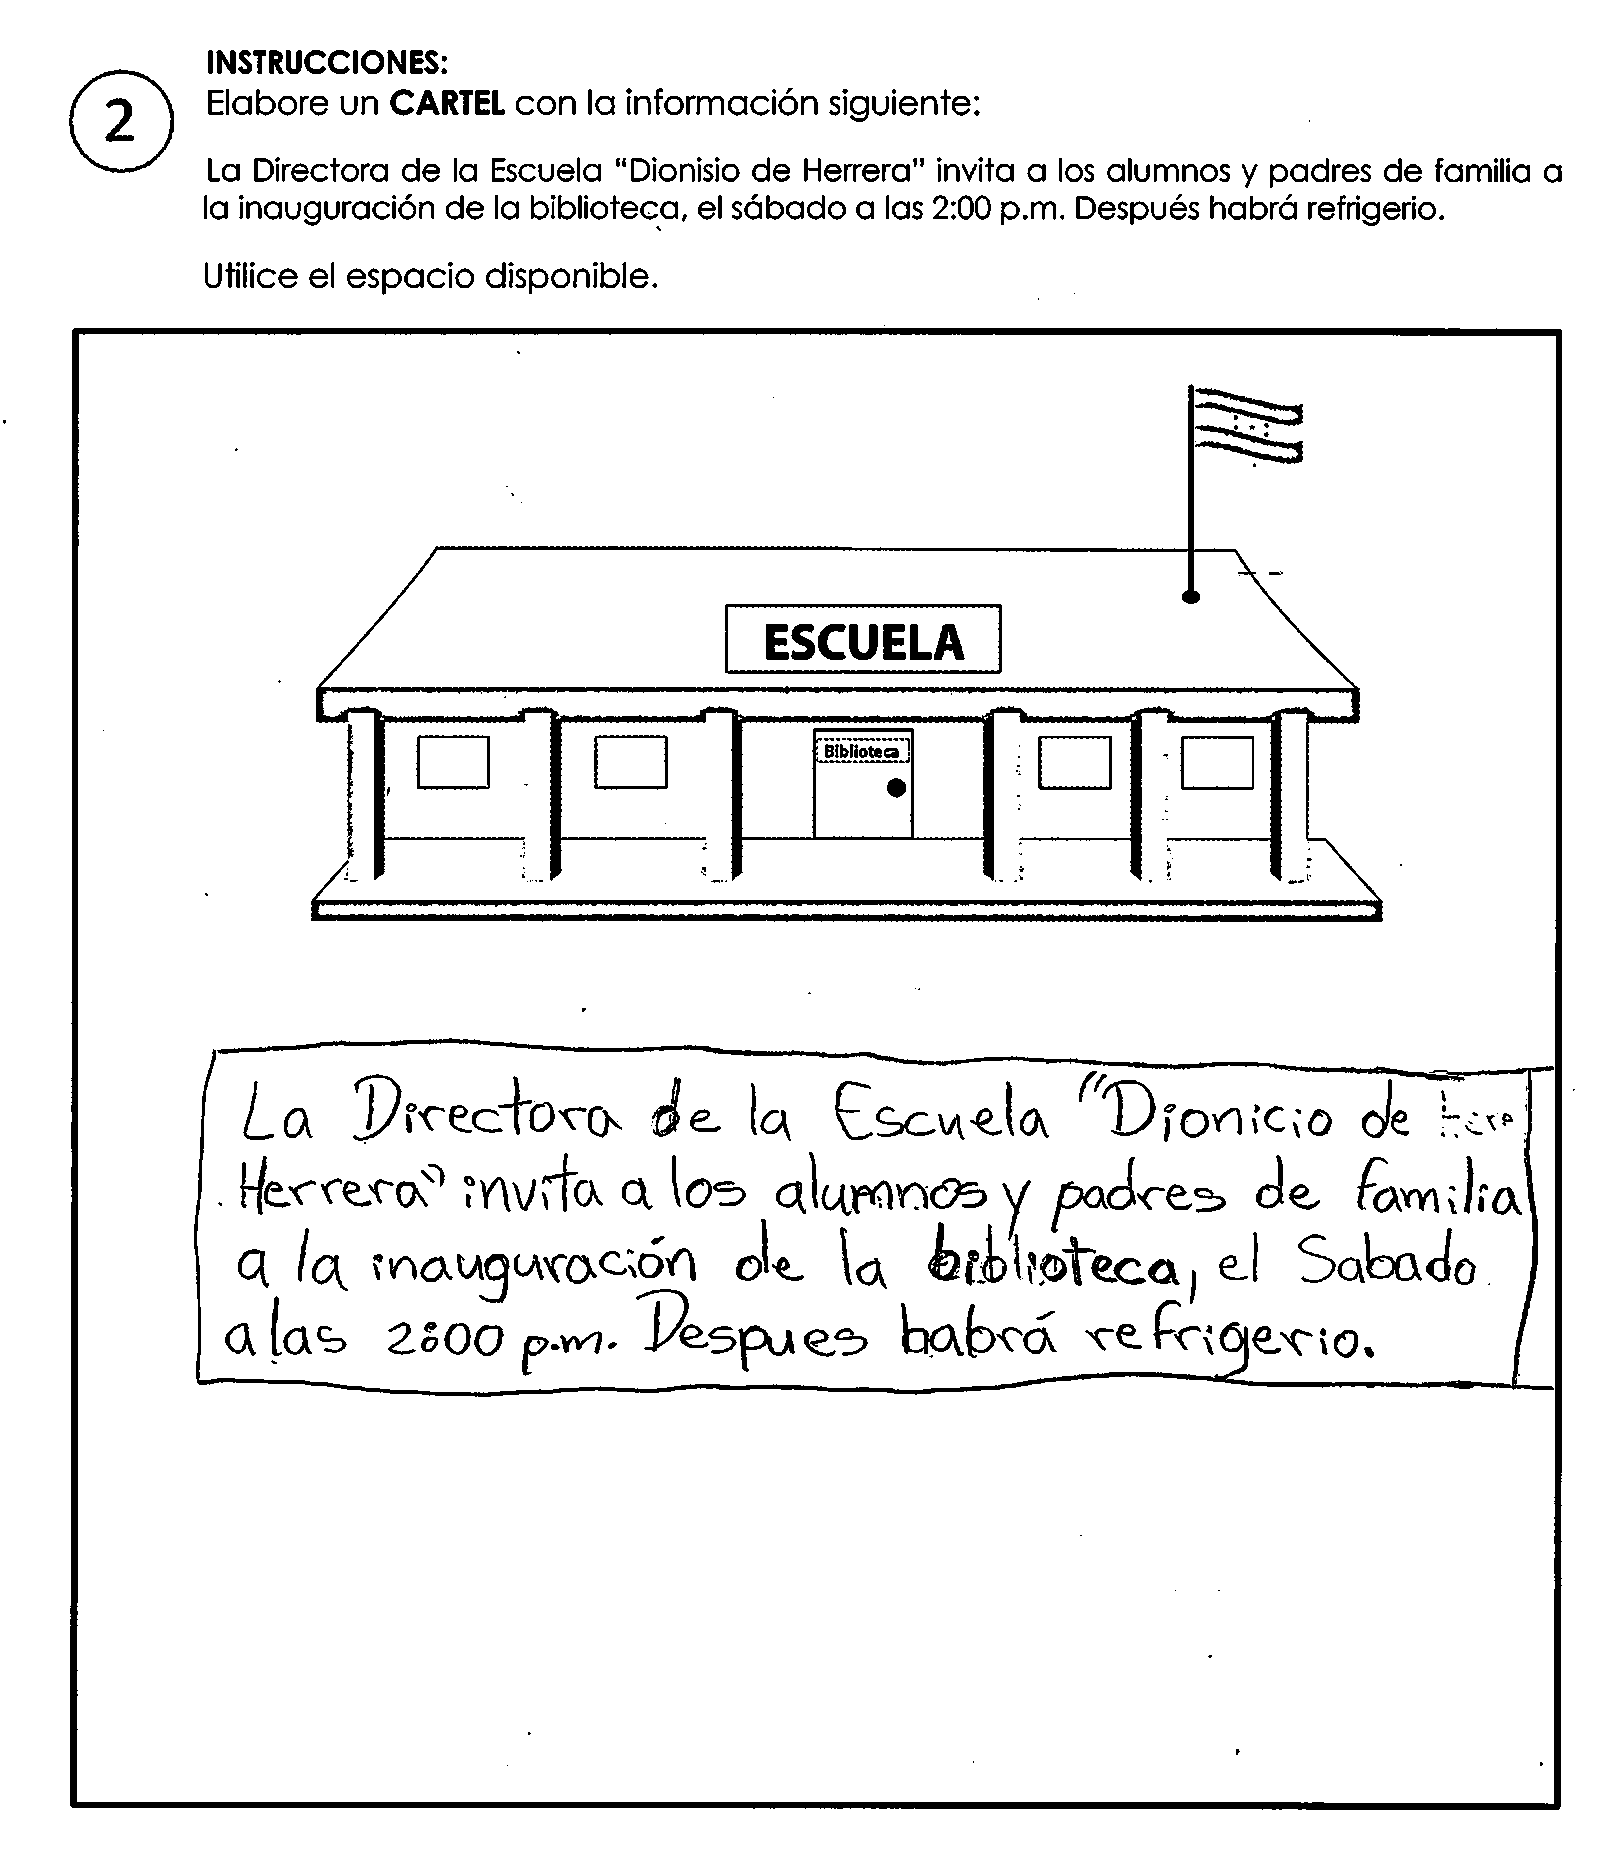 INSTRUCCIONES:
2
Elabore un CARTEL con la información siguiente:
La Directora de la Escuela “Dionisio de Herrera” invita a los alumnos y padres de familia a
la inauguración de la biblioteca, el sábado a las 2:00 p.m. Después habrá refrigerio.
Utilice el espacio disponible.
ESCUELA
Biblioteca
La Directora de la Escuela "Dionicio de
Herrera" invita a los alumnos y padres de familia
a la inauguración de la biblioteca, el Sabado
a las 2:00 p.m. Despues habrá refrigerio.